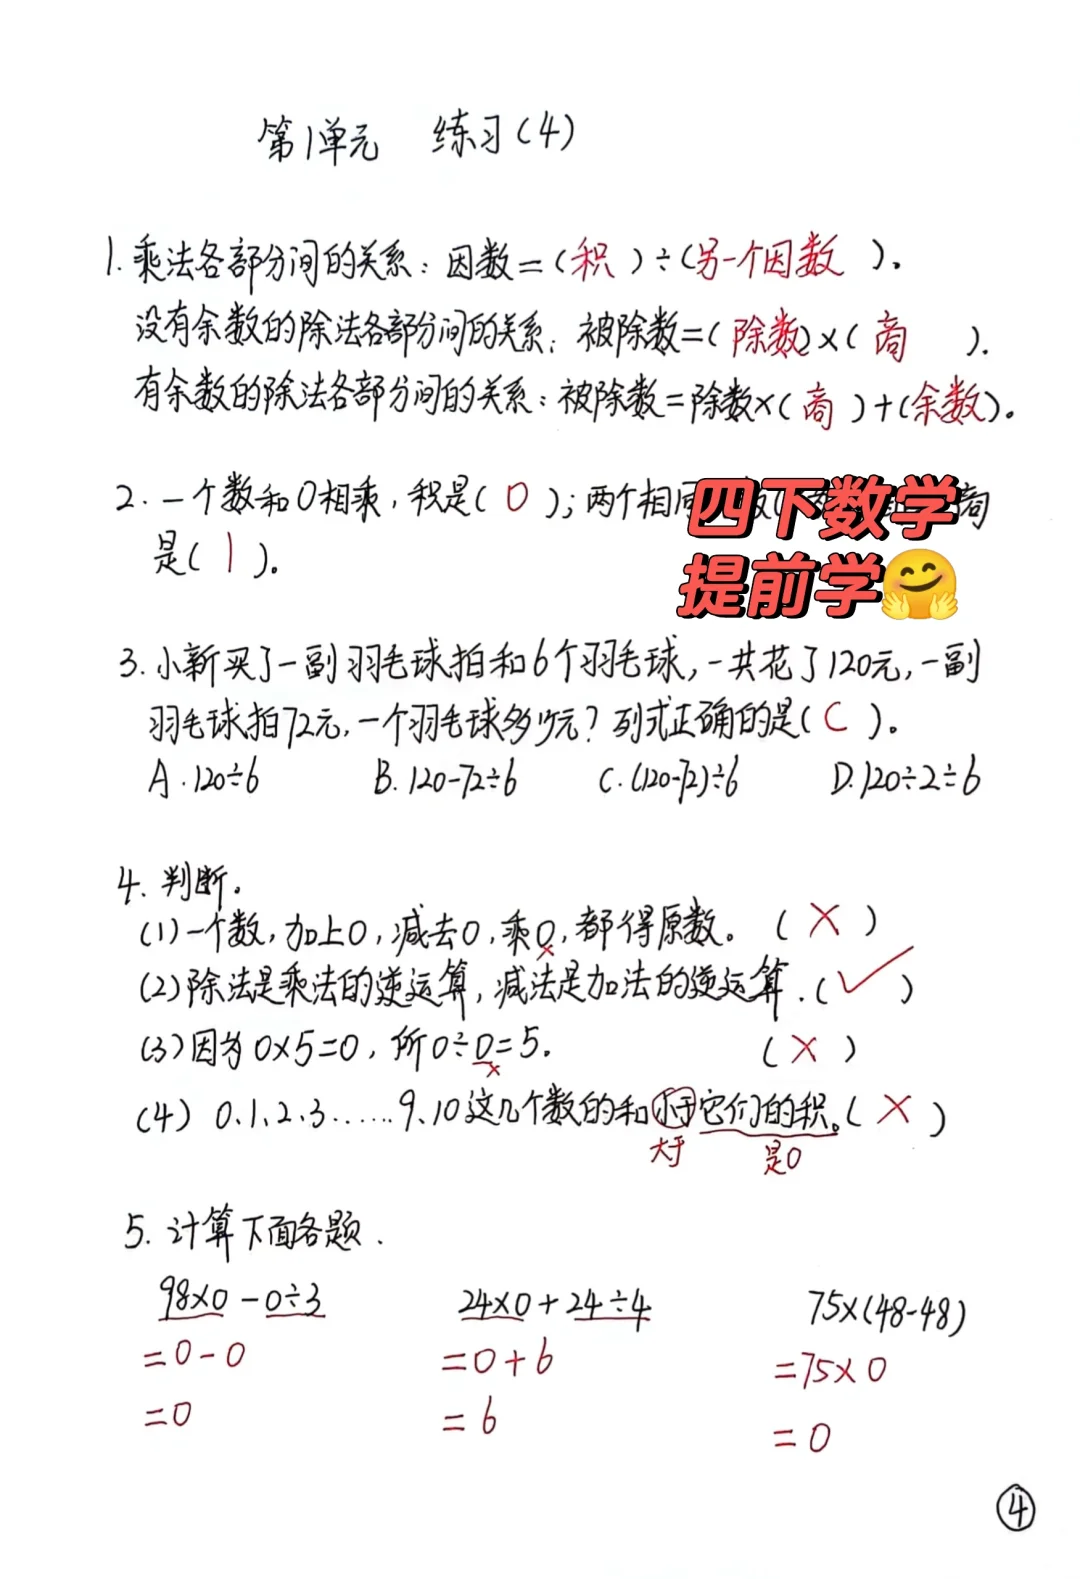 第1单元 练习(4)
1. 乘法各部分间的关系：因数=(积)÷(另一个因数)。
没有余数的除法各部分间的关系：被除数=(除数)×(商).
有余数的除法各部分间的关系：被除数=除数×(商)+(余数)。
2. 一个数和0相乘，积是(0)；两个相同 商
是(1)。
四下数学
提前学🤗
3. 小新买了一副羽毛球拍和6个羽毛球，一共花了120元，一副
羽毛球拍72元，一个羽毛球多少元？列式正确的是(C)。
A.120÷6 B.120-72÷6 C.(120-72)÷6 D.120÷2÷6
4. 判断。
(1)一个数，加上0，减去0，乘0，都得原数。(×)
×
(2)除法是乘法的逆运算，减法是加法的逆运算.(✓)
(3)因为0×5=0，所0÷0=5. (×)
×
(4) 0.1.2.3……9.10这几个数的和小于它们的积。(×)
大于 是0
5. 计算下面各题.
98×0-0÷3 24×0+24÷4 75×(48-48)
=0-0 =0+6 =75×0
=0 =6 =0
④